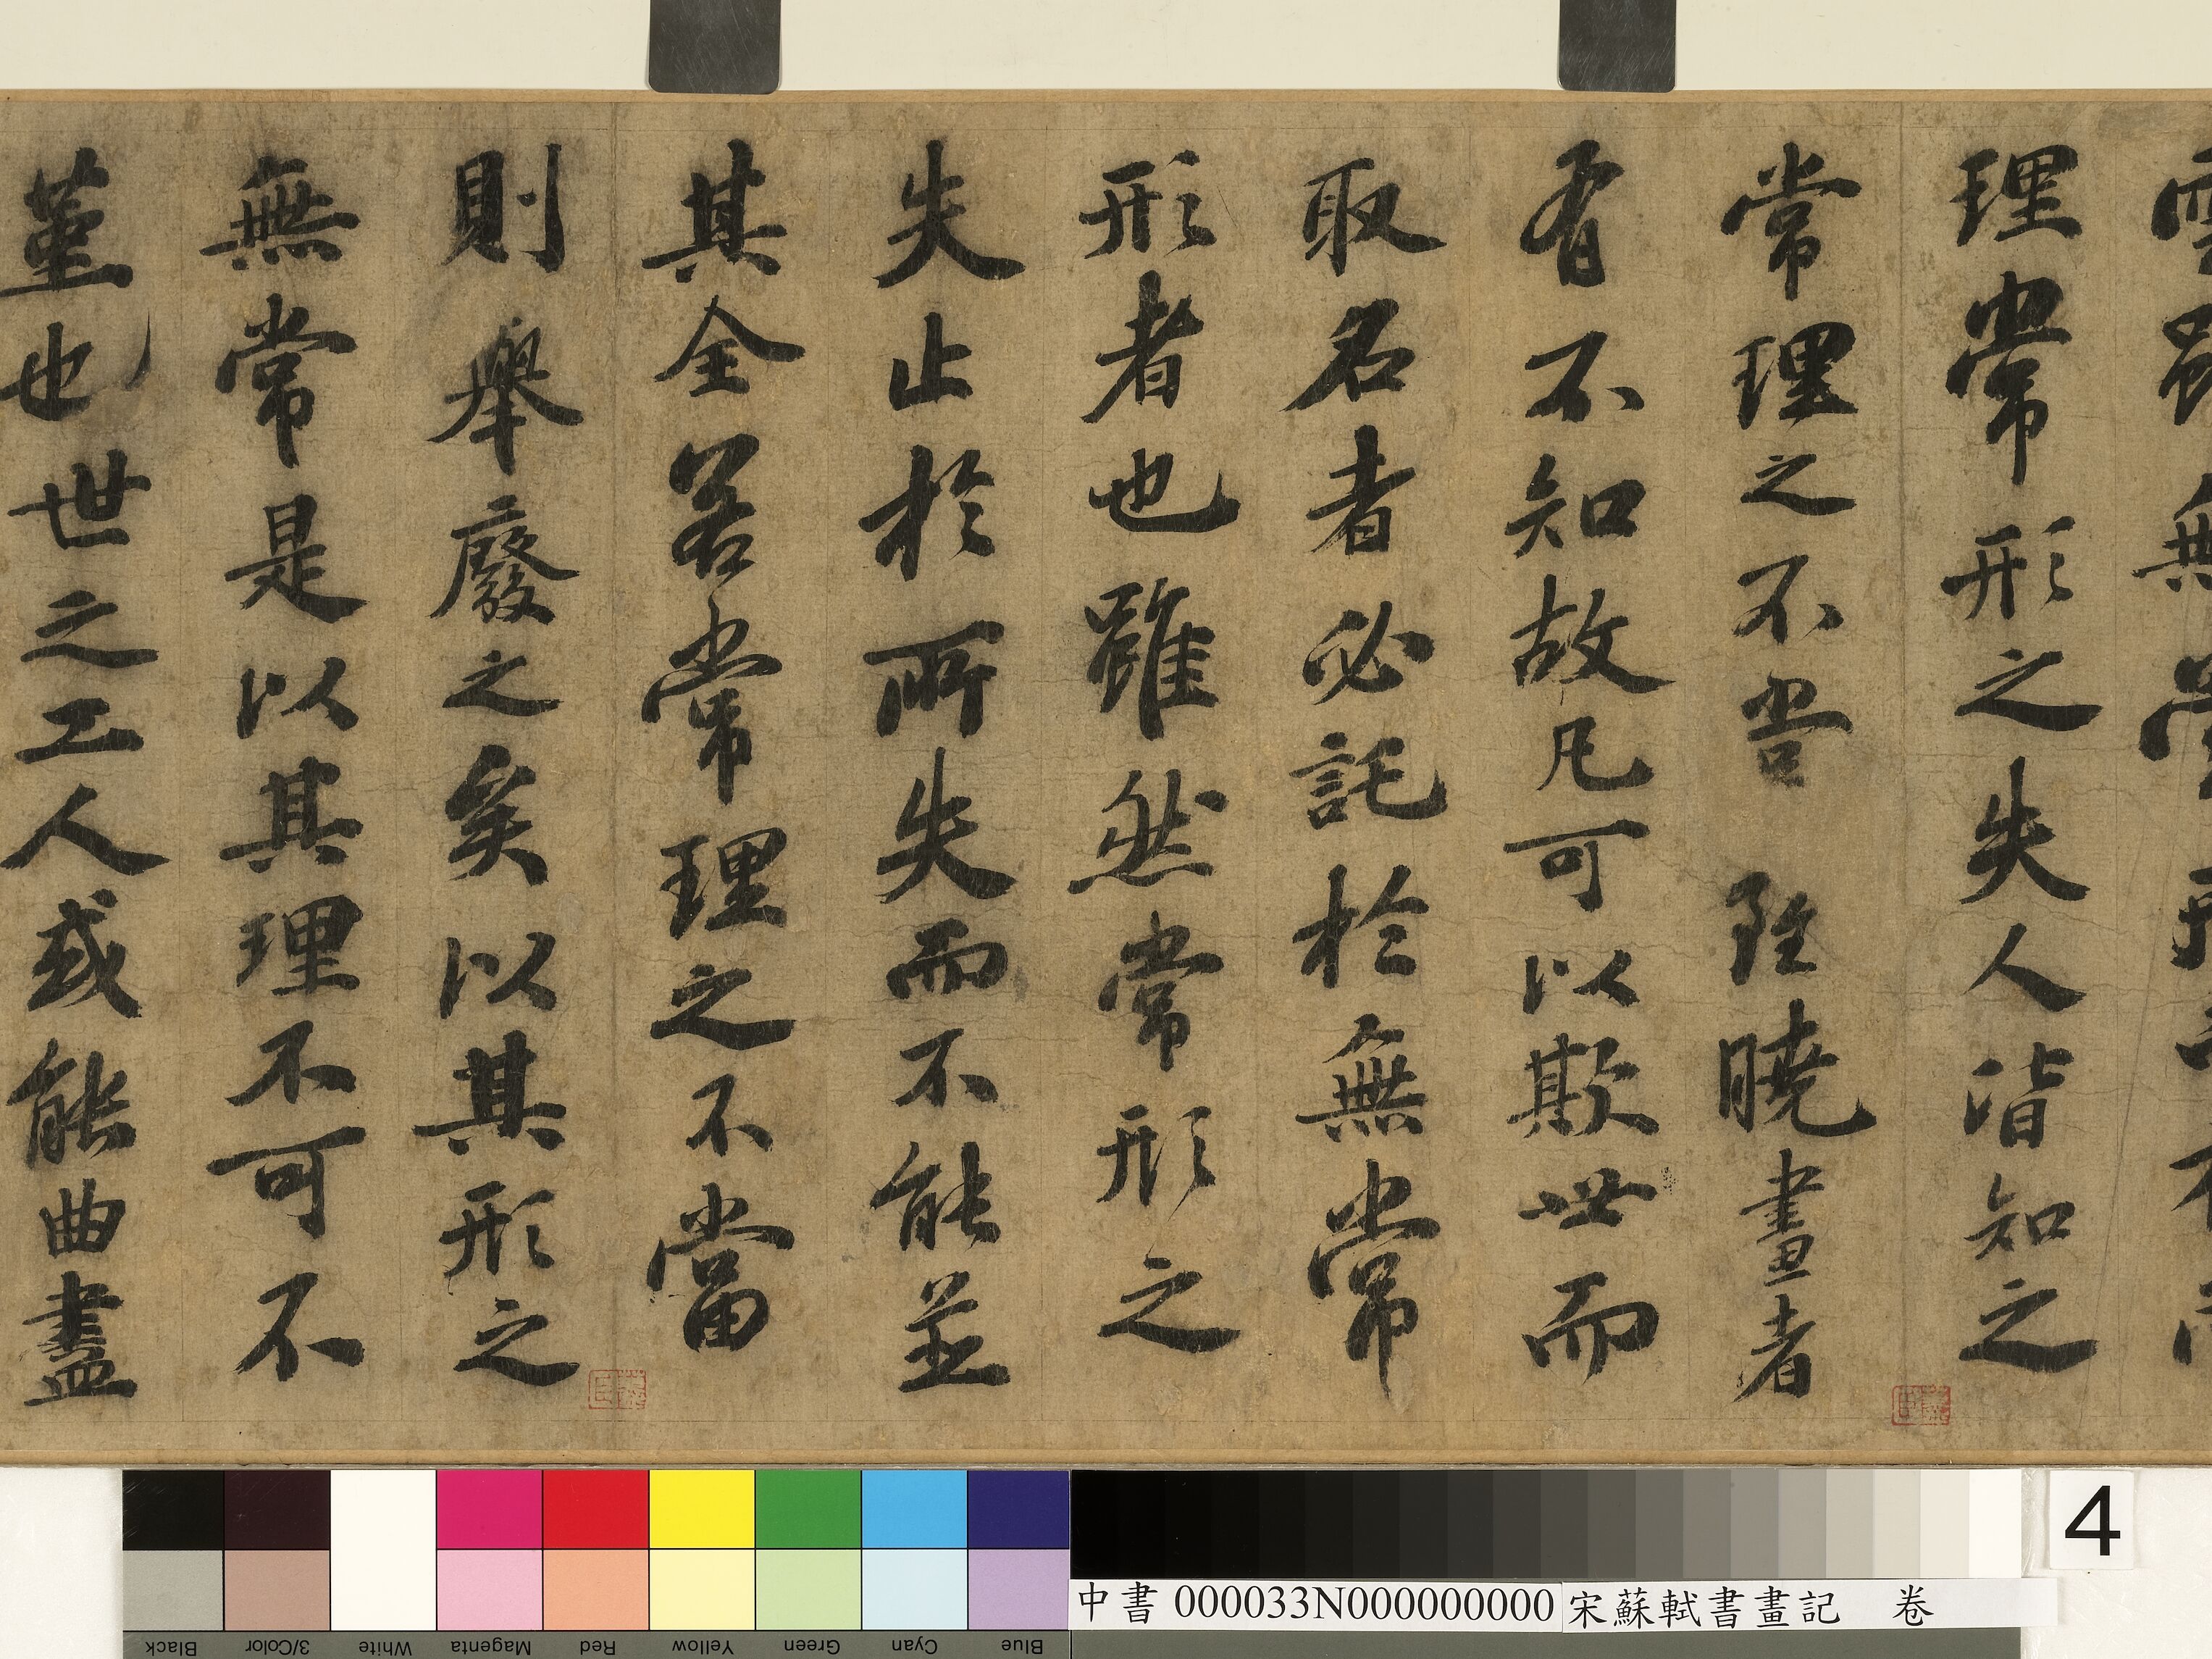 雲雖無常形
理常形之失人皆知之
常理之不曉畫者
有不知故凡可以欺世而
取名者必託於無常
形者也雖然常形之
失止於所失而不能並
其全若常理之不當
則舉廢之矣以其形之
無常是以其理不可不
堇也世之工人或能曲盡
4
中書 000033N000000000 宋蘇軾書畫記 卷
Black 3/Color White Magenta Red Yellow Green Cyan Blue